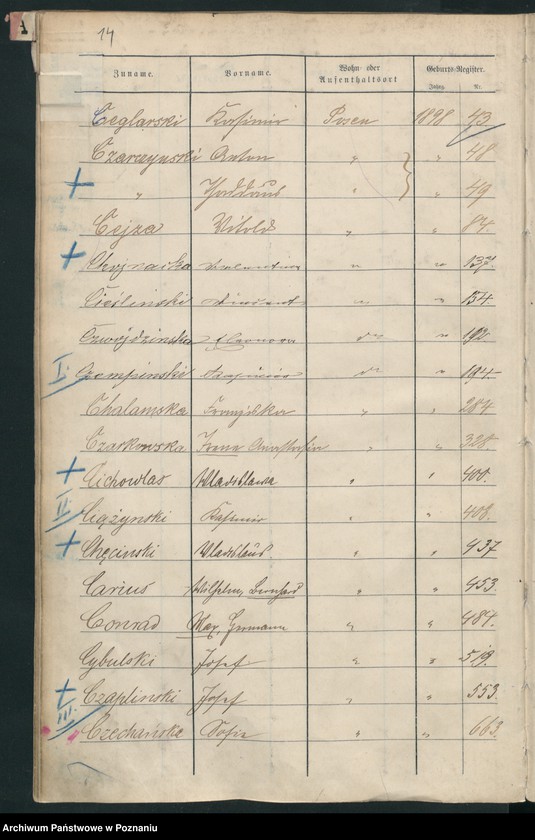 A
14
Zuname. Vorname. Wohn- oder Aufenthaltsort Geburts-Register.
Jahrg. Nr.
Ceglarski Kasimir Posen 1898 43
Czarzynski Anton " " 48
" Thaddäus " " 49
Cejza Witold " " 84
Chojnacka Valentina " " 137
Cieślinski Vincent " " 154
Czwójdzinska Eleonora do " 192
I. Czempinski do " 194
Chalamska Franziska " " 284
Czarkowska Irena Anastasia " " 328
Cichowlas Wladislawa " " 400
II Ciążynski Kasimir " " 408
Chęcinski Wladislaus " " 437
Carius Wilhelm Bernhard " " 453
Conrad Max, Hermann " " 484
Cybulski Josef " " 519
Czaplinski Josef " " 553
III. Czechańska Sofie " " 663
Archiwum Państwowe w Poznaniu